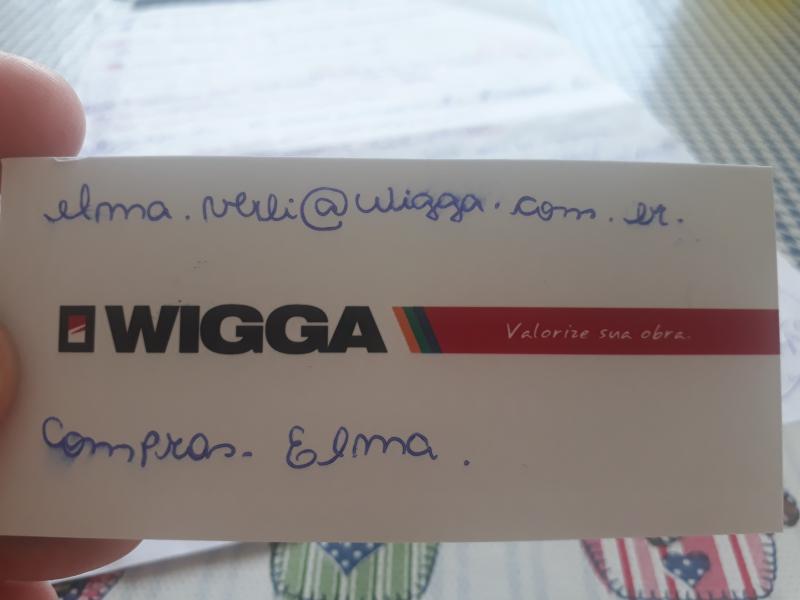 elma.verli@wigga.com.er.
WIGGA
Valorize sua obra.
Compras. Elma.